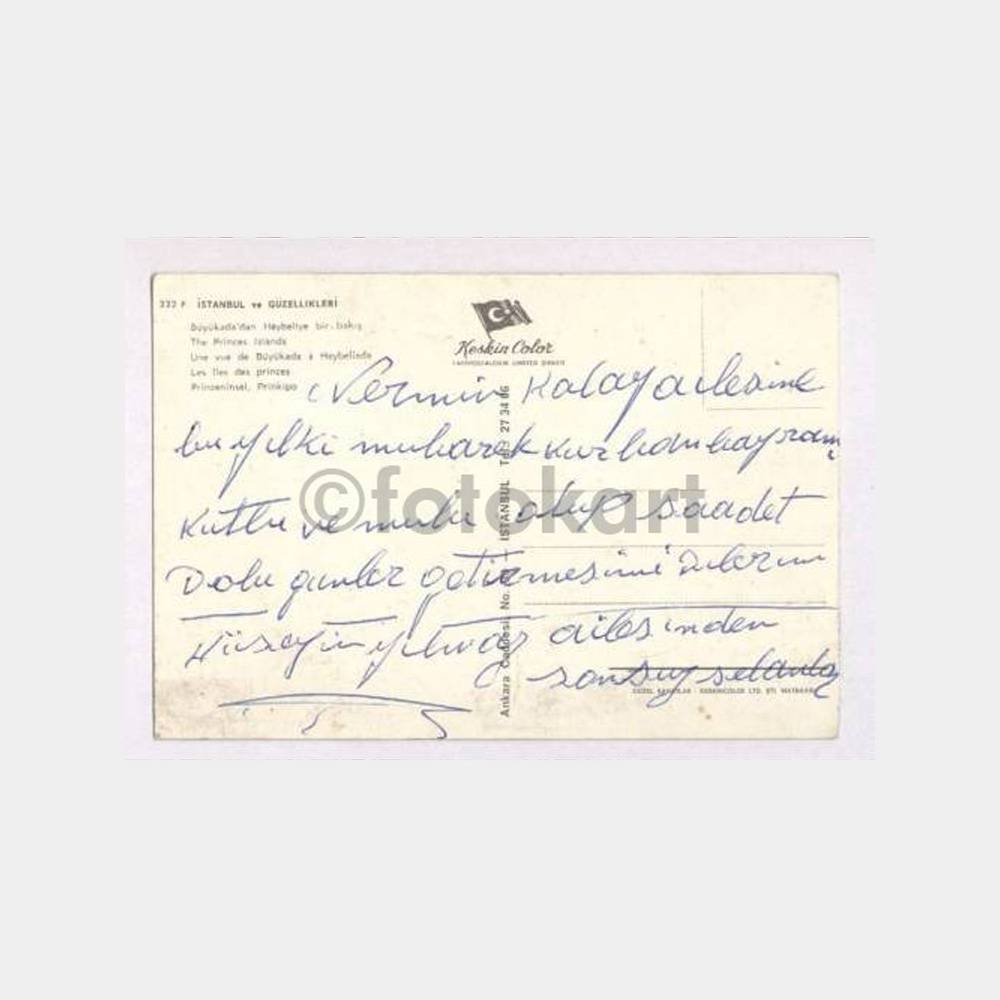 222 F İSTANBUL ve GÜZELLİKLERİ
Büyükada'dan Heybeliye bir bakış
The Princes Islands
Une vue de Büyükada à Heybeliada
Les îles des princes
Prinzeninsel, Prinkipo
Keskin Color
LIMITED ŞİRKETİ
Nermin Kalay ailesine
bu yılki mubarek kurban bayramı
kutlu ve mutlu olup saadet
Dolu günler getirmesini dilerim
Hüseyin Yılmaz ailesinden
sonsuz selamlar
Ankara Caddesi No. İSTANBUL Tel: 27 34 86
GÜZEL SANATLAR - KESKİNCOLOR LTD. ŞTİ. MATBAASI
©fotokart